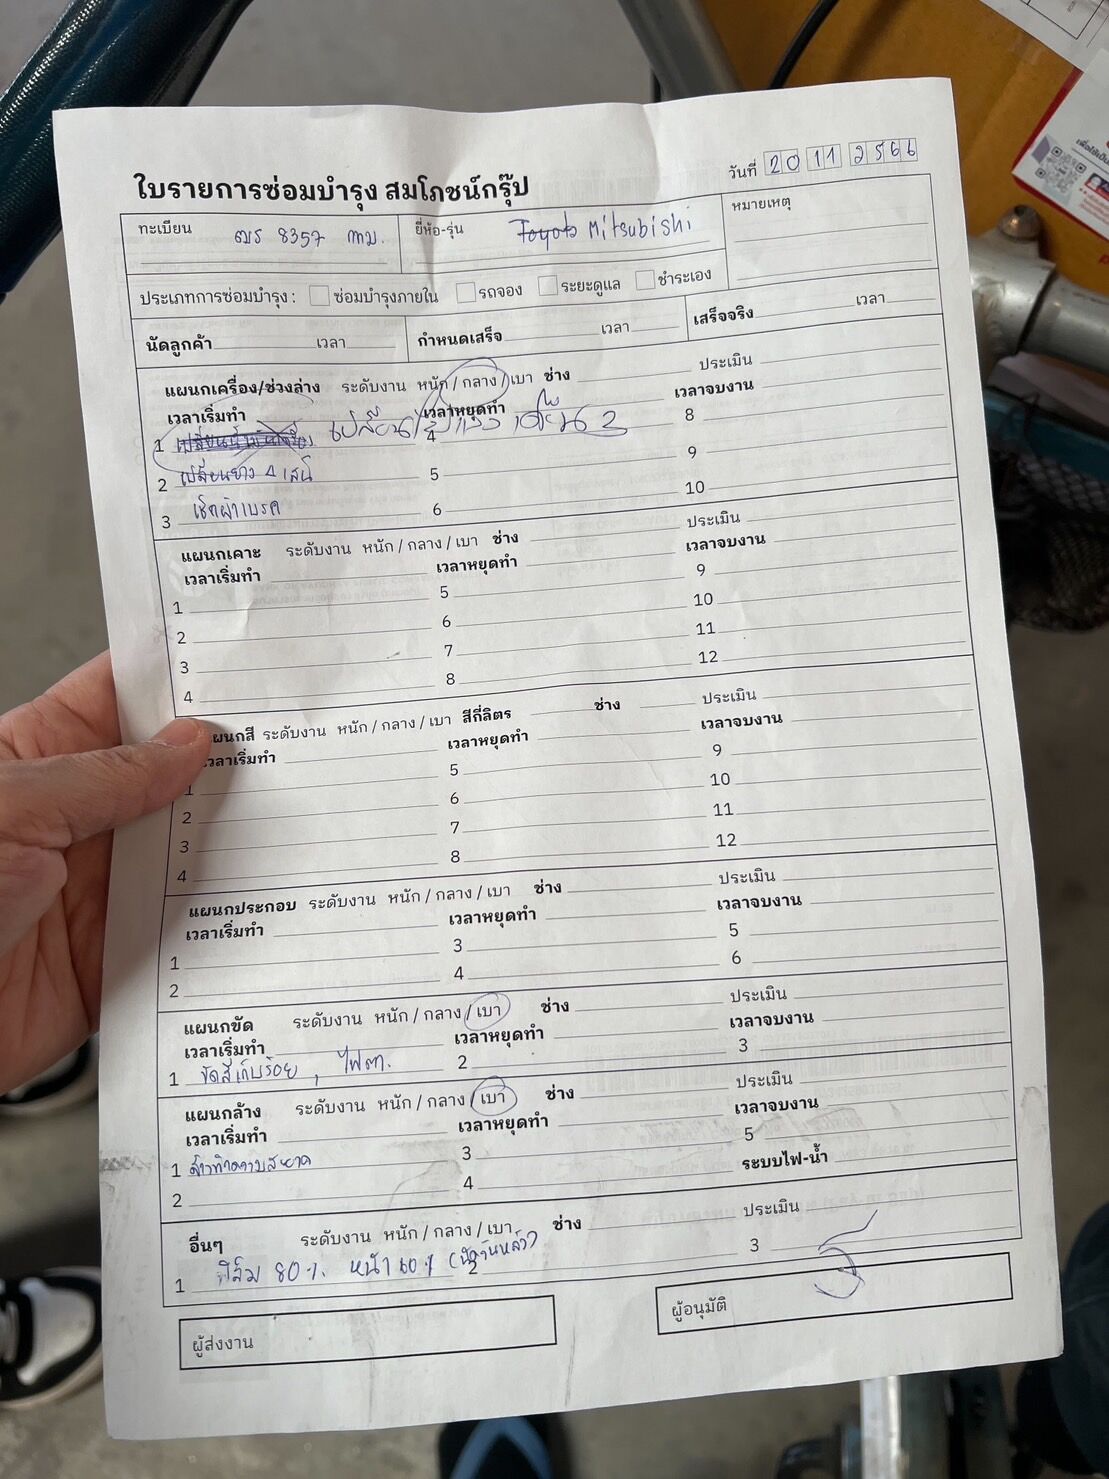 วันที่ 20 11 2566
ใบรายการซ่อมบำรุง สมโภชน์กรุ๊ป
ทะเบียน 8357 กทม. ยี่ห้อ-รุ่น Toyota Mitsubishi หมายเหตุ
ประเภทการซ่อมบำรุง : ซ่อมบำรุงภายใน รถจอง ระยะดูแล ชำระเอง
นัดลูกค้า เวลา กำหนดเสร็จ เวลา เสร็จจริง เวลา
แผนกเครื่อง/ช่วงล่าง ระดับงาน หนัก / กลาง / เบา ช่าง ประเมิน
เวลาเริ่มทำ เวลาหยุดทำ เวลาจบงาน
1 เปลี่ยนน้ำมันเครื่อง เปลี่ยน 4 8
2 เปลี่ยนยาง 4 เส้น 5 9
3 เช็คผ้าเบรค 6 10
แผนกเคาะ ระดับงาน หนัก / กลาง / เบา ช่าง ประเมิน
เวลาเริ่มทำ เวลาหยุดทำ เวลาจบงาน
1 5 9
2 6 10
3 7 11
4 8 12
แผนกสี ระดับงาน หนัก / กลาง / เบา สีกี่ลิตร ช่าง ประเมิน
เวลาเริ่มทำ เวลาหยุดทำ เวลาจบงาน
1 5 9
2 6 10
3 7 11
4 8 12
แผนกประกอบ ระดับงาน หนัก / กลาง / เบา ช่าง ประเมิน
เวลาเริ่มทำ เวลาหยุดทำ เวลาจบงาน
1 3 5
2 4 6
แผนกขัด ระดับงาน หนัก / กลาง / เบา ช่าง ประเมิน
เวลาเริ่มทำ เวลาหยุดทำ เวลาจบงาน
1 ขัดสีเก็บร้อย , ไฟตา. 2 3
แผนกล้าง ระดับงาน หนัก / กลาง / เบา ช่าง ประเมิน
เวลาเริ่มทำ เวลาหยุดทำ เวลาจบงาน
1 ล้างทำความสะอาด 3 5
2 4 ระบบไฟ-น้ำ
อื่นๆ ระดับงาน หนัก / กลาง / เบา ช่าง ประเมิน
1 ฟิล์ม 80 %. หน้า 60 % 2 3
ผู้ส่งงาน ผู้อนุมัติ